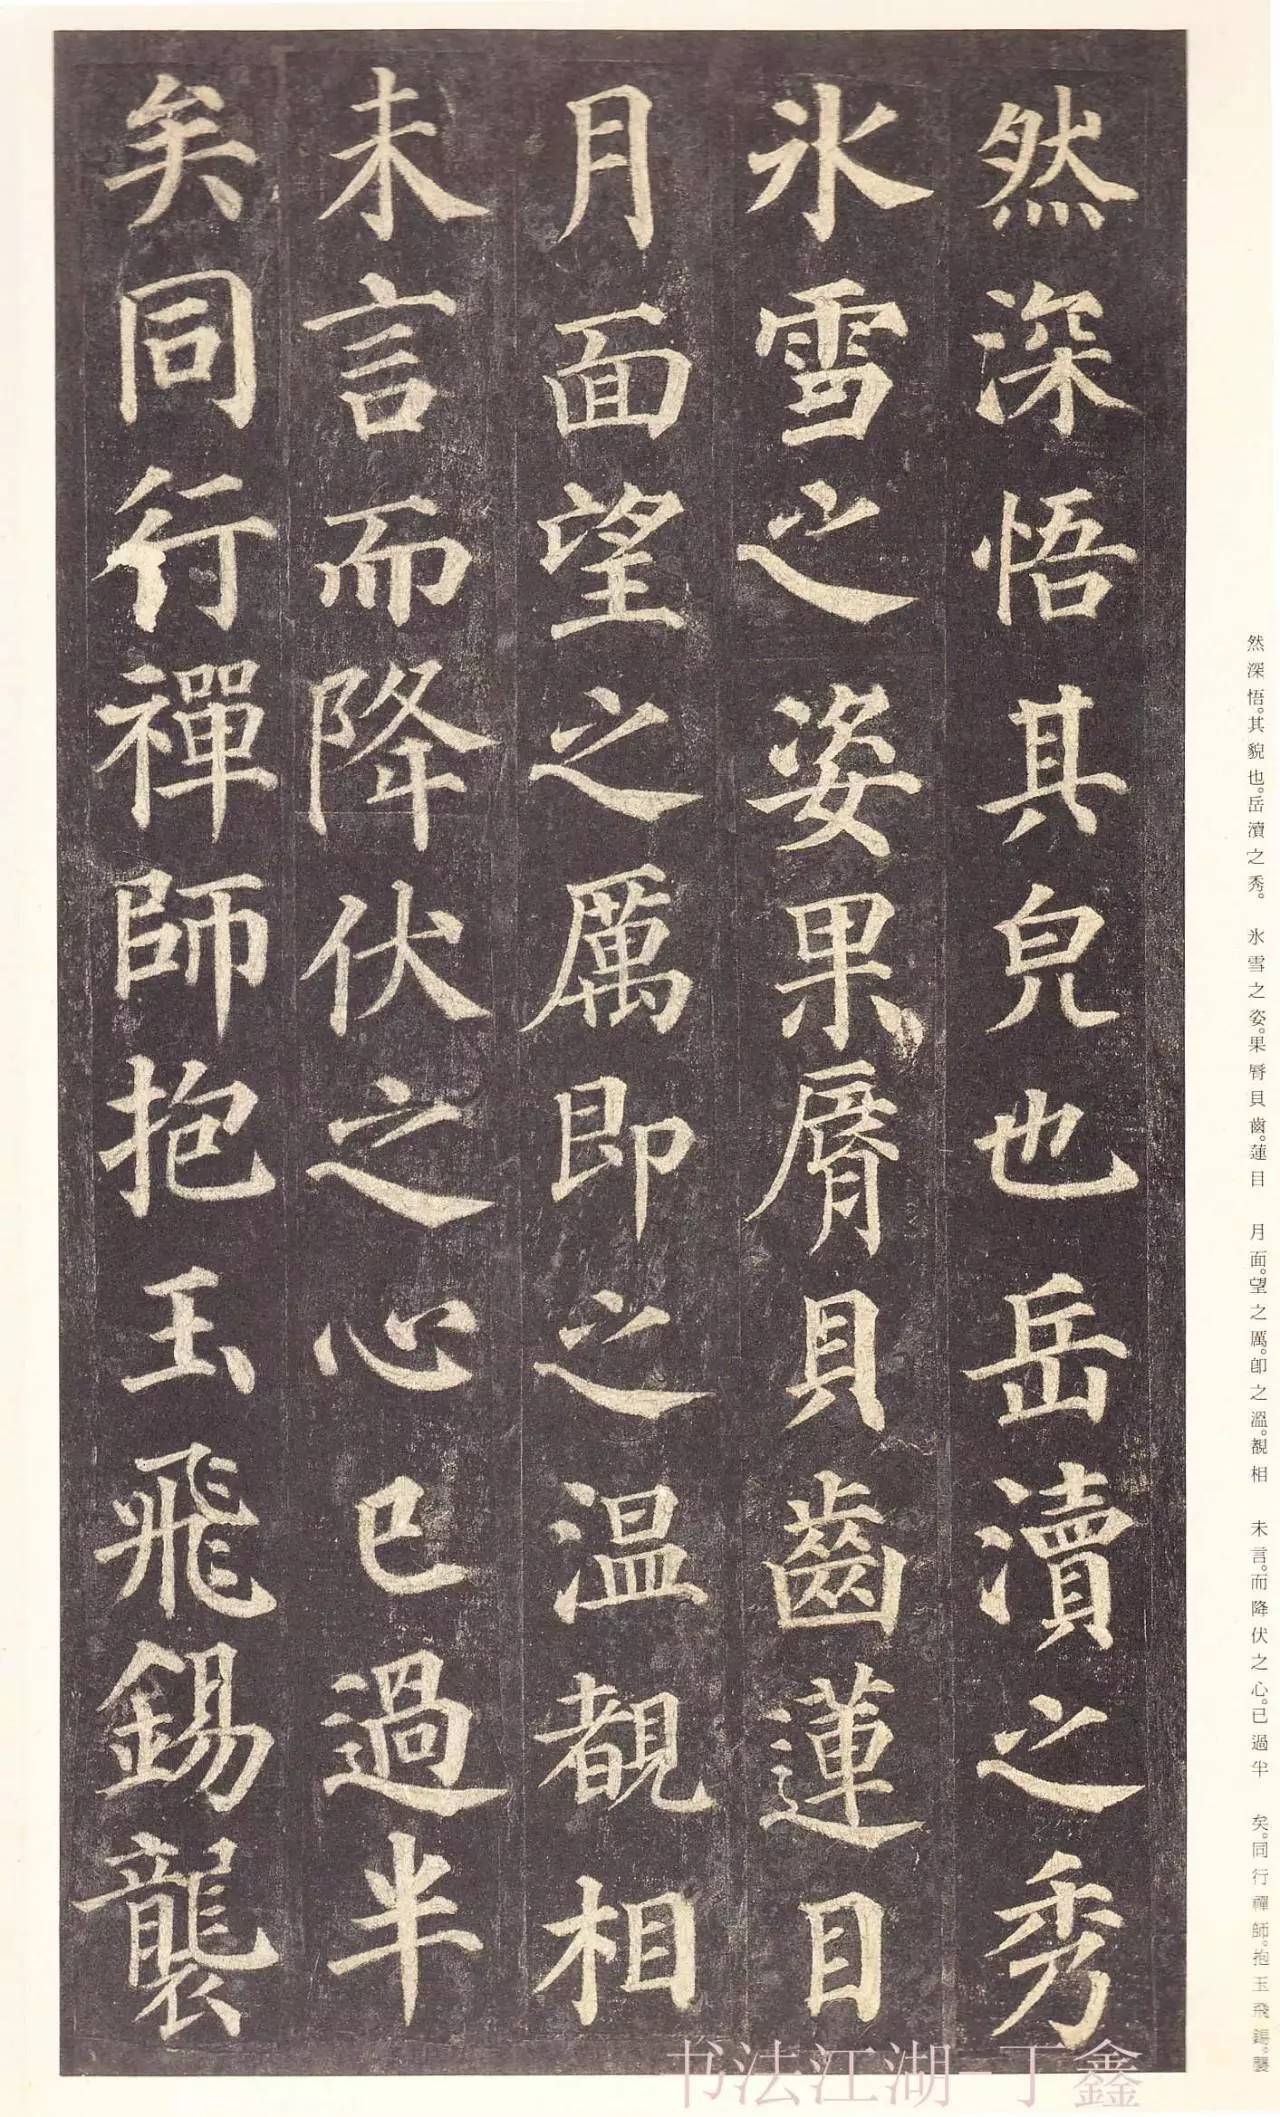 然深悟其皃也岳瀆之秀
氷雪之姿果脣貝齒蓮目
月面望之厲即之温覩相
未言而降伏之心已過半
矣同行禪師抱玉飛錫襲
然深悟。其貌也。岳瀆之秀。 氷雪之姿。果脣貝齒。蓮目 月面。望之厲。卽之溫。覩相 未言。而降伏之心。已過半 矣。同行禪師。抱玉飛錫。襲
书法江湖-丁鑫